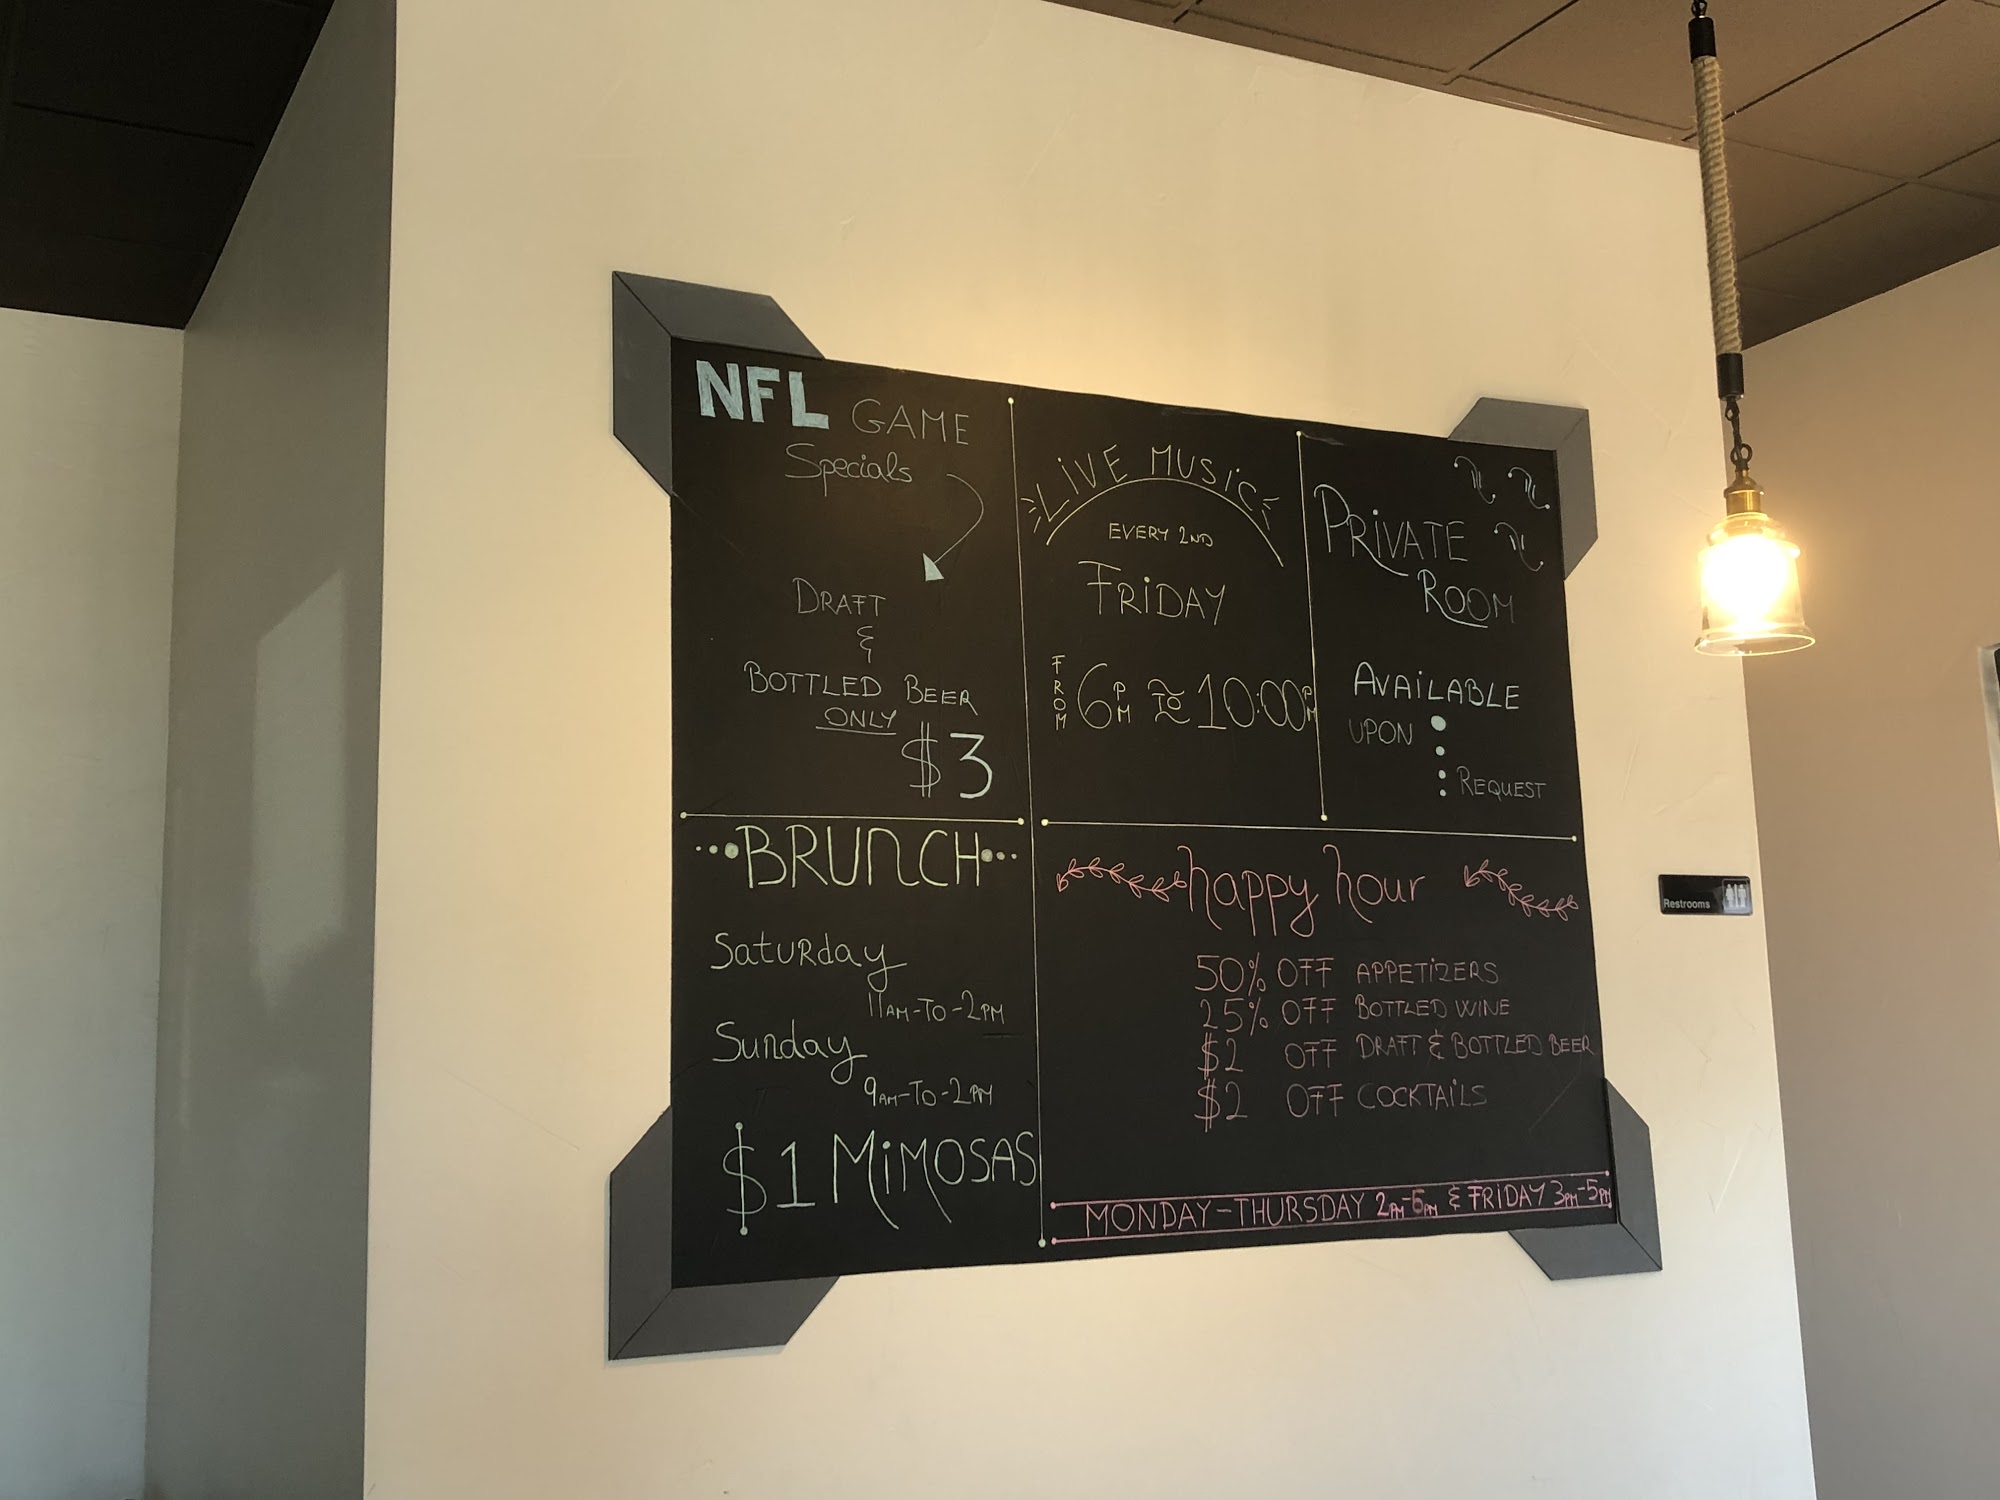 NFL GAME
Specials
DRAFT
&
BOTTLED BEER
ONLY
$3
LIVE MUSIC
EVERY 2ND
FRIDAY
FROM 6PM TO 10:00PM
PRIVATE
ROOM
AVAILABLE
UPON
REQUEST
BRUNCH
Saturday
11AM-TO-2PM
Sunday
9AM-TO-2PM
$1 MIMOSAS
happy hour
50% OFF APPETIZERS
25% OFF BOTTLED WINE
$2 OFF DRAFT & BOTTLED BEER
$2 OFF COCKTAILS
MONDAY-THURSDAY 2PM-6PM & FRIDAY 3PM-5PM
Restrooms